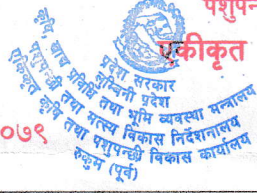 पशुपन्
एकीकृत
प्रदेश सरकार
लुम्बिनी प्रदेश
कृषि, खाद्य प्रविधि तथा भूमि व्यवस्था मन्त्रालय
पशुपन्छी तथा मत्स्य विकास निर्देशनालय
एकिकृत कृषि तथा पशुपन्छी विकास कार्यालय
रुकुम (पूर्व)
०७९